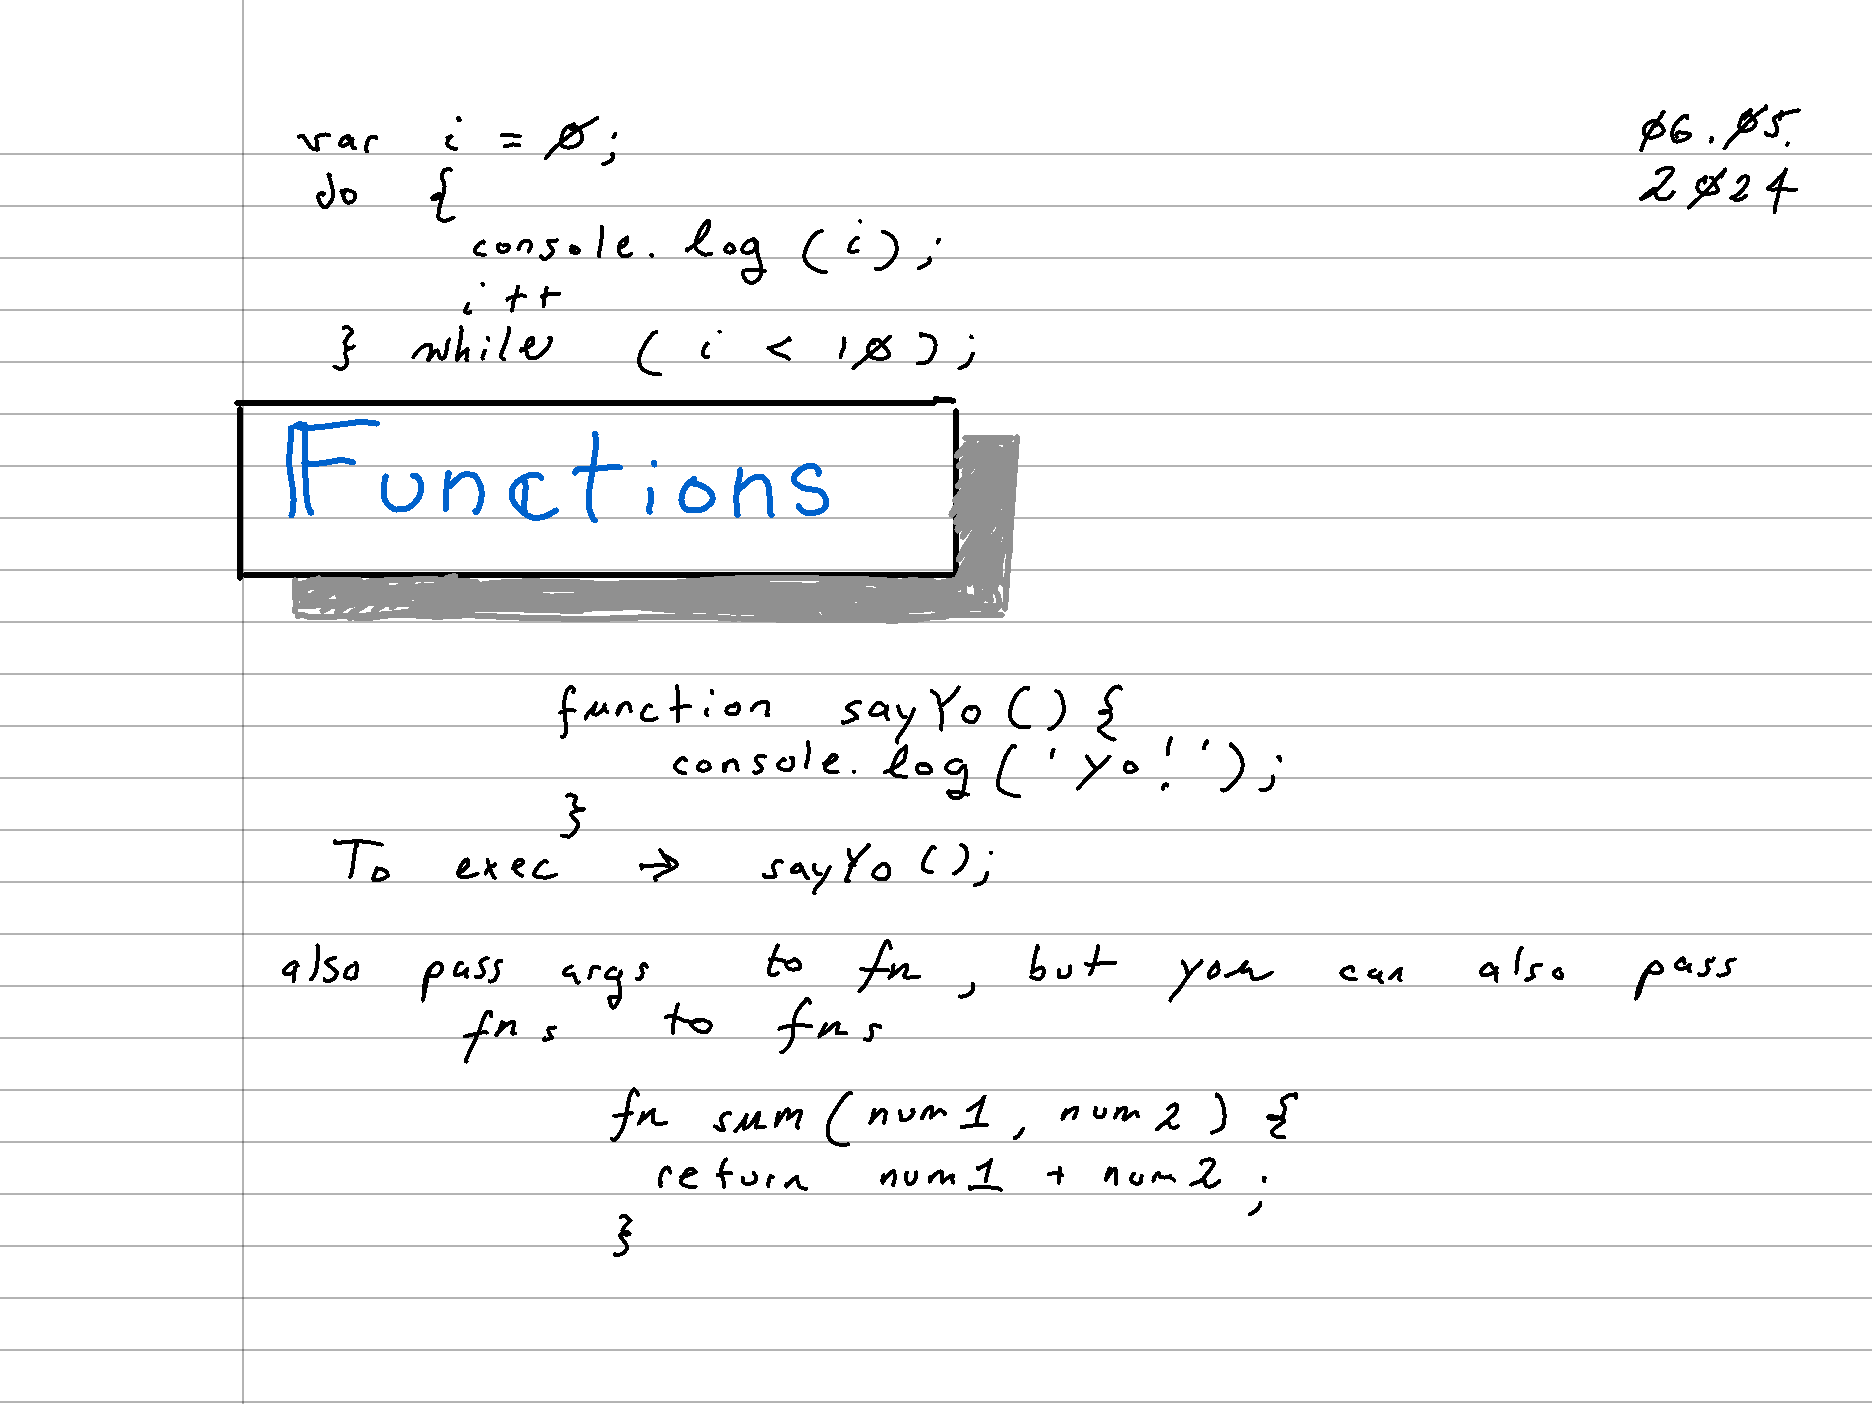 var i = 0;
06.05.
do {
2024
console.log (i);
i++
} while (i < 10);
Functions
function sayYo () {
console.log ('yo!');
}
To exec → sayYo ();
also pass args to fn, but you can also pass
fns to fns
fn sum (num1, num2) {
return num1 + num2;
}